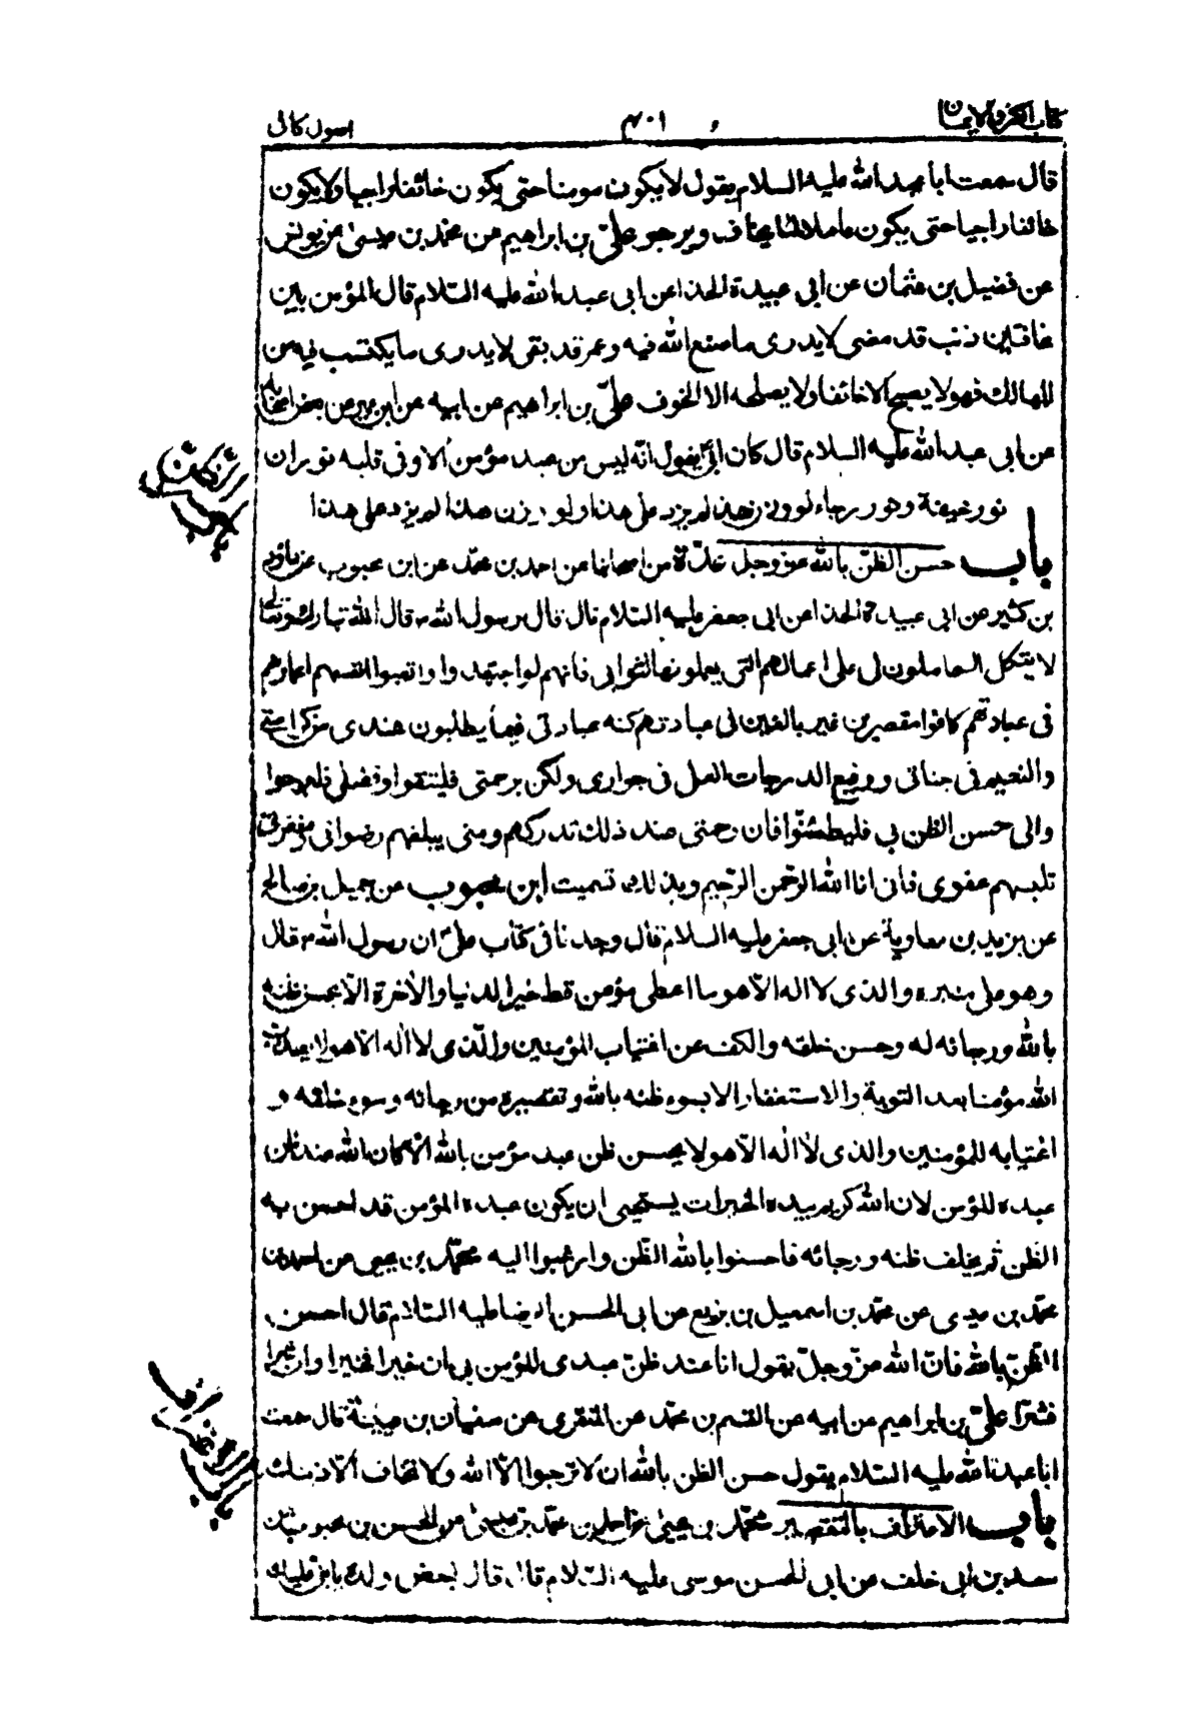 كتاب الكفر والايمان
٤٠١
اصول كافى
قال سمعت ابا عبد الله عليه السلام يقول لا يكون مومنا حتى يكون خائفا راجيا ولا يكون
خائفا راجيا حتى يكون عاملا لما يخاف ويرجو علىّ بن ابراهيم عن محمّد بن عيسىٰ عن يونس
عن فضيل بن عثمان عن ابى عبيدة الحذا عن ابى عبد الله عليه السّلام قال المؤمن بين
مخافتين ذنب قد مضى لا يدرى ما صنع الله فيه وعمر قد بقى لا يدرى ما يكتسب فيه من
المهالك فهو لا يصبح الا خائفا ولا يصلحه الا الخوف علىّ بن ابراهيم عن ابيه عن ابن عمير عن بعض اصحابه
عن ابى عبد الله عليه السلام قال كان ابى يقول انّه ليس من عبد مؤمن الا وفى قلبه نوران
نور خيفة ونور رجاء لو وزن هذا لم يزد على هذا ولو وزن هذا لم يزد على هذا
باب حسن الظنّ بالله عز وجل عدّة من اصحابنا عن احمد بن محمّد عن ابن محبوب عن داود
بن كثير عن ابى عبيدة الحذا عن ابى جعفر عليه السّلام قال قال رسول الله ص قال الله تبارك وتعالى
لا يتكل العاملون لى على اعمالهم التى يعملونها لثوابى فانهم لو اجتهدوا واتعبوا انفسهم اعمارهم
فى عبادتهم كانوا مقصرين غير بالغين فى عبادتهم كنه عبادتى فيما يطلبون عندى من كرامتى
والنعيم فى جناتى ورفيع الدرجات العلى فى جوارى ولكن برحمتى فليثقوا وفضلى فليرجوا
والى حسن الظن بى فليطمئنّوا فان رحمتى عند ذلك تدركهم ومنى يبلغهم رضوانى ومغفرتى
تلبسهم عفوى فانى انا الله الرحمن الرحيم وبذلك تسميت ابن محبوب عن جميل بن صالح
عن بريد بن معاوية عن ابى جعفر عليه السلام قال وجدنا فى كتاب علىّ ان رسول الله ص قال
وهو على منبره والذى لا اله الّا هو ما اعطى مؤمن قط خير الدنيا والآخرة الّا بحسن ظنه
بالله ورجائه له وحسن خلقه والكف عن اغتياب المؤمنين والّذى لا اله الا هو لا يعذب
الله مؤمنا بعد التوبة والاستغفار الا بسوء ظنه بالله وتقصيره من رجائه وسوء خلقه و
اغتيابه للمؤمنين والذى لا اله الّا هو لا يحسن ظن عبد مؤمن بالله الّا كان الله عند ظن
عبده المؤمن لان الله كريم بيده الخيرات يستحيى ان يكون عبده المؤمن قد احسن به
الظن ثم يخلف ظنه ورجائه فاحسنوا بالله الظّن وارغبوا اليه محمّد بن يحيى عن احمد بن
محمّد بن عيسى عن محمّد بن اسمعيل بن بزيع عن ابى الحسن الرضا عليه السّلام قال احسن
الظّن بالله فانّ الله عزّ وجلّ يقول انا عند ظنّ عبدى المؤمن بى ان خيرا فخيرا وان شرا
فشرّا علىّ بن ابراهيم عن ابيه عن القسم بن محمّد عن المنقرى عن سفيان بن عيينة قال سمعت
ابا عبد الله عليه السّلام يقول حسن الظن بالله ان لا ترجوا الّا الله ولا تخاف الّا ذنبك
باب الاعتراف بالتقصير محمّد بن يحيىٰ عن احمد بن محمّد بن عيسىٰ عن الحسن بن محبوب عن
سعد بن ابى خلف عن ابى الحسن موسى عليه السّلام قال قال لبعض ولده يا بنى عليك